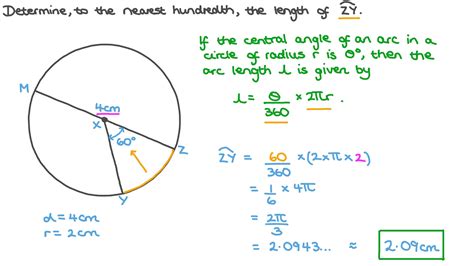 Determine, to the nearest hundredth, the length of ZY.
If the central angle of an arc in a
circle of radius r is θ°, then the
arc length l is given by
l = θ/360 × 2πr.
M
4cm
X
60°
Z
Y
d = 4cm
r = 2cm
ZY = 60/360 × (2×π×2)
= 1/6 × 4π
= 2π/3
= 2.0943... ≈ 2.09cm